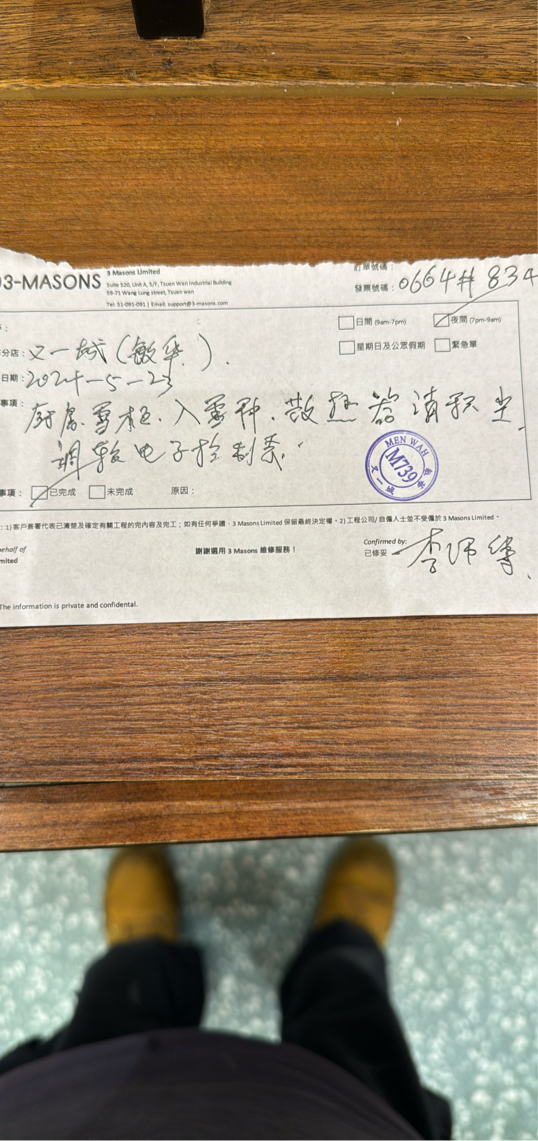 3-MASONS
3 Masons Limited
Suite 520, Unit A, 5/F, Tsuen Wan Industrial Building
59-71 Wang Lung street, Tsuen wan
Tel: 51-091-091 | Email: support@3-masons.com
訂單號碼：
發票號碼：0664# 834
日間 (9am-7pm) 夜間 (7pm-9am)
星期日及公眾假期 緊急單
分店：又一城(敏华).
日期：2024-5-23
事項：厨房雪柜.入雪种.散热器清积尘.
調較电子控制表.
MEN WAH
M739
又一城
事項： 已完成 未完成 原因：
：1)客戶簽署代表已清楚及確定有關工程的完內容及完工；如有任何爭議，3 Masons Limited 保留最終決定權。2)工程公司/自僱人士並不受僱於 3 Masons Limited。
ehalf of
mited
謝謝選用 3 Masons 維修服務！
Confirmed by:
已修妥
The information is private and confidential.